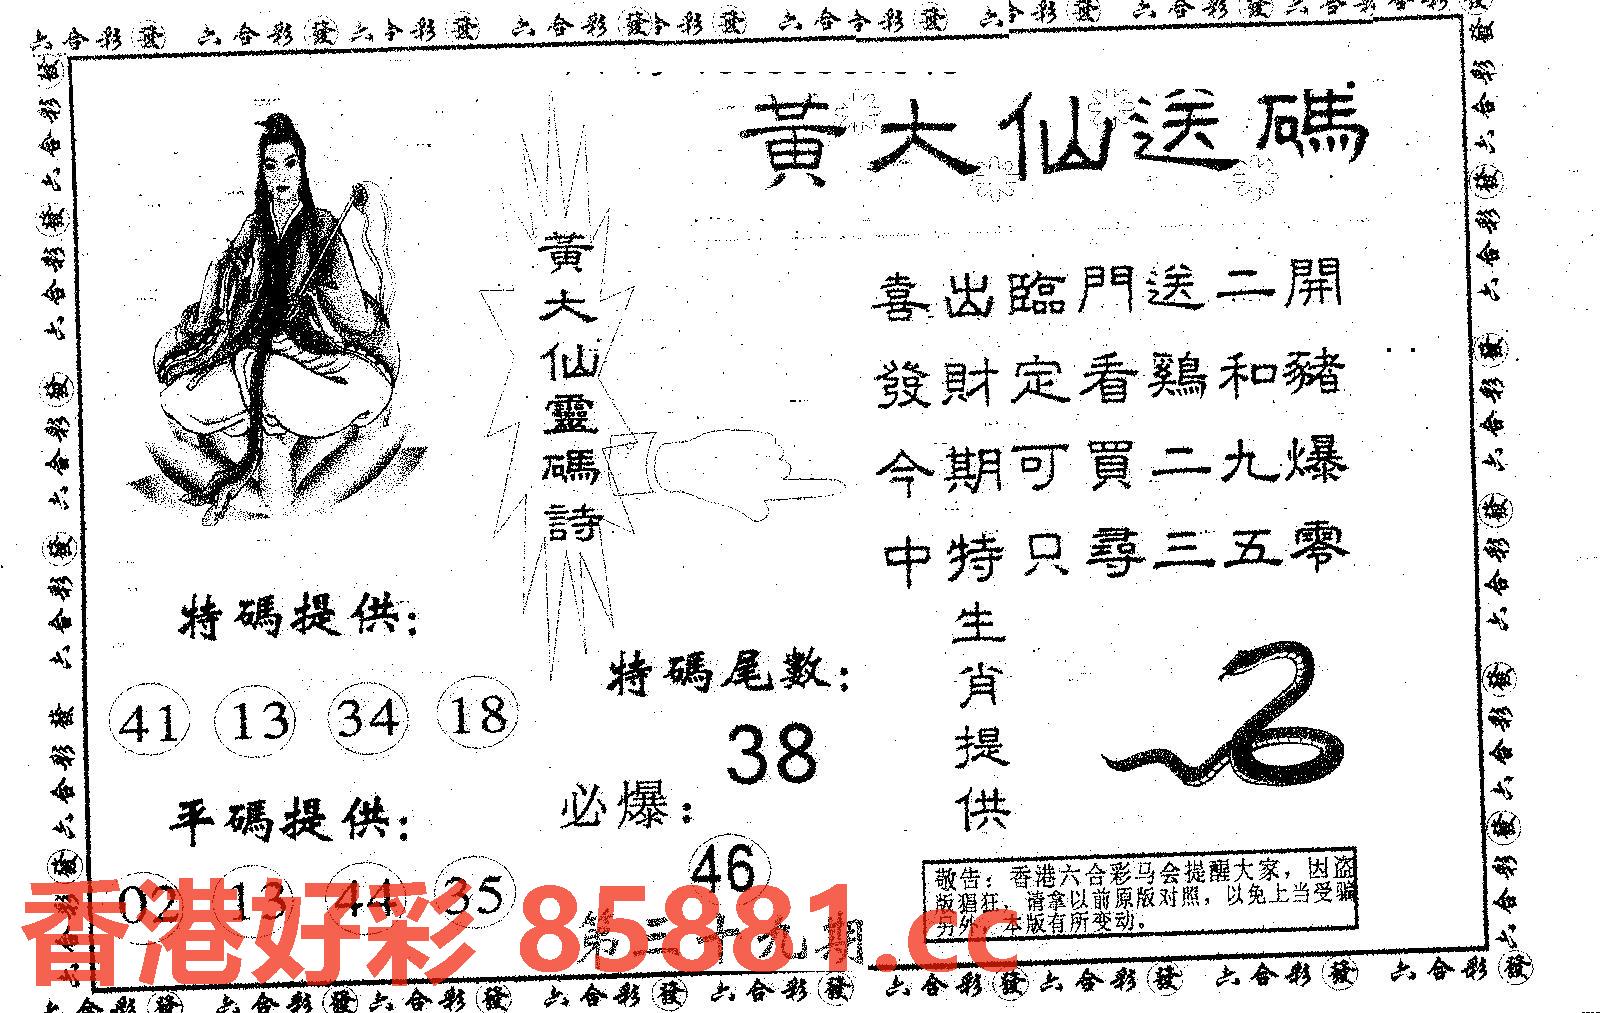 六合彩發 六合彩發 六合彩發 六合彩發 六合彩發 六合彩發 六合彩發 六合彩發 六合彩發
黃大仙送碼
黃大仙靈碼詩
喜出臨門送二開
發財定看鷄和豬
今期可買二九爆
中特只尋三五零
特碼提供：
41 13 34 18
平碼提供：
02 13 44 35
特碼尾數：
38
必爆：
46
第三十九期
生肖提供
敬告：香港六合彩马会提醒大家，因盗
版猖狂，请拿以前原版对照，以免上当受骗
另外，本版有所变动。
香港好彩 85881.cc
六合彩發 六合彩發 六合彩發 六合彩發 六合彩發 六合彩發 六合彩發 六合彩發 六合彩發